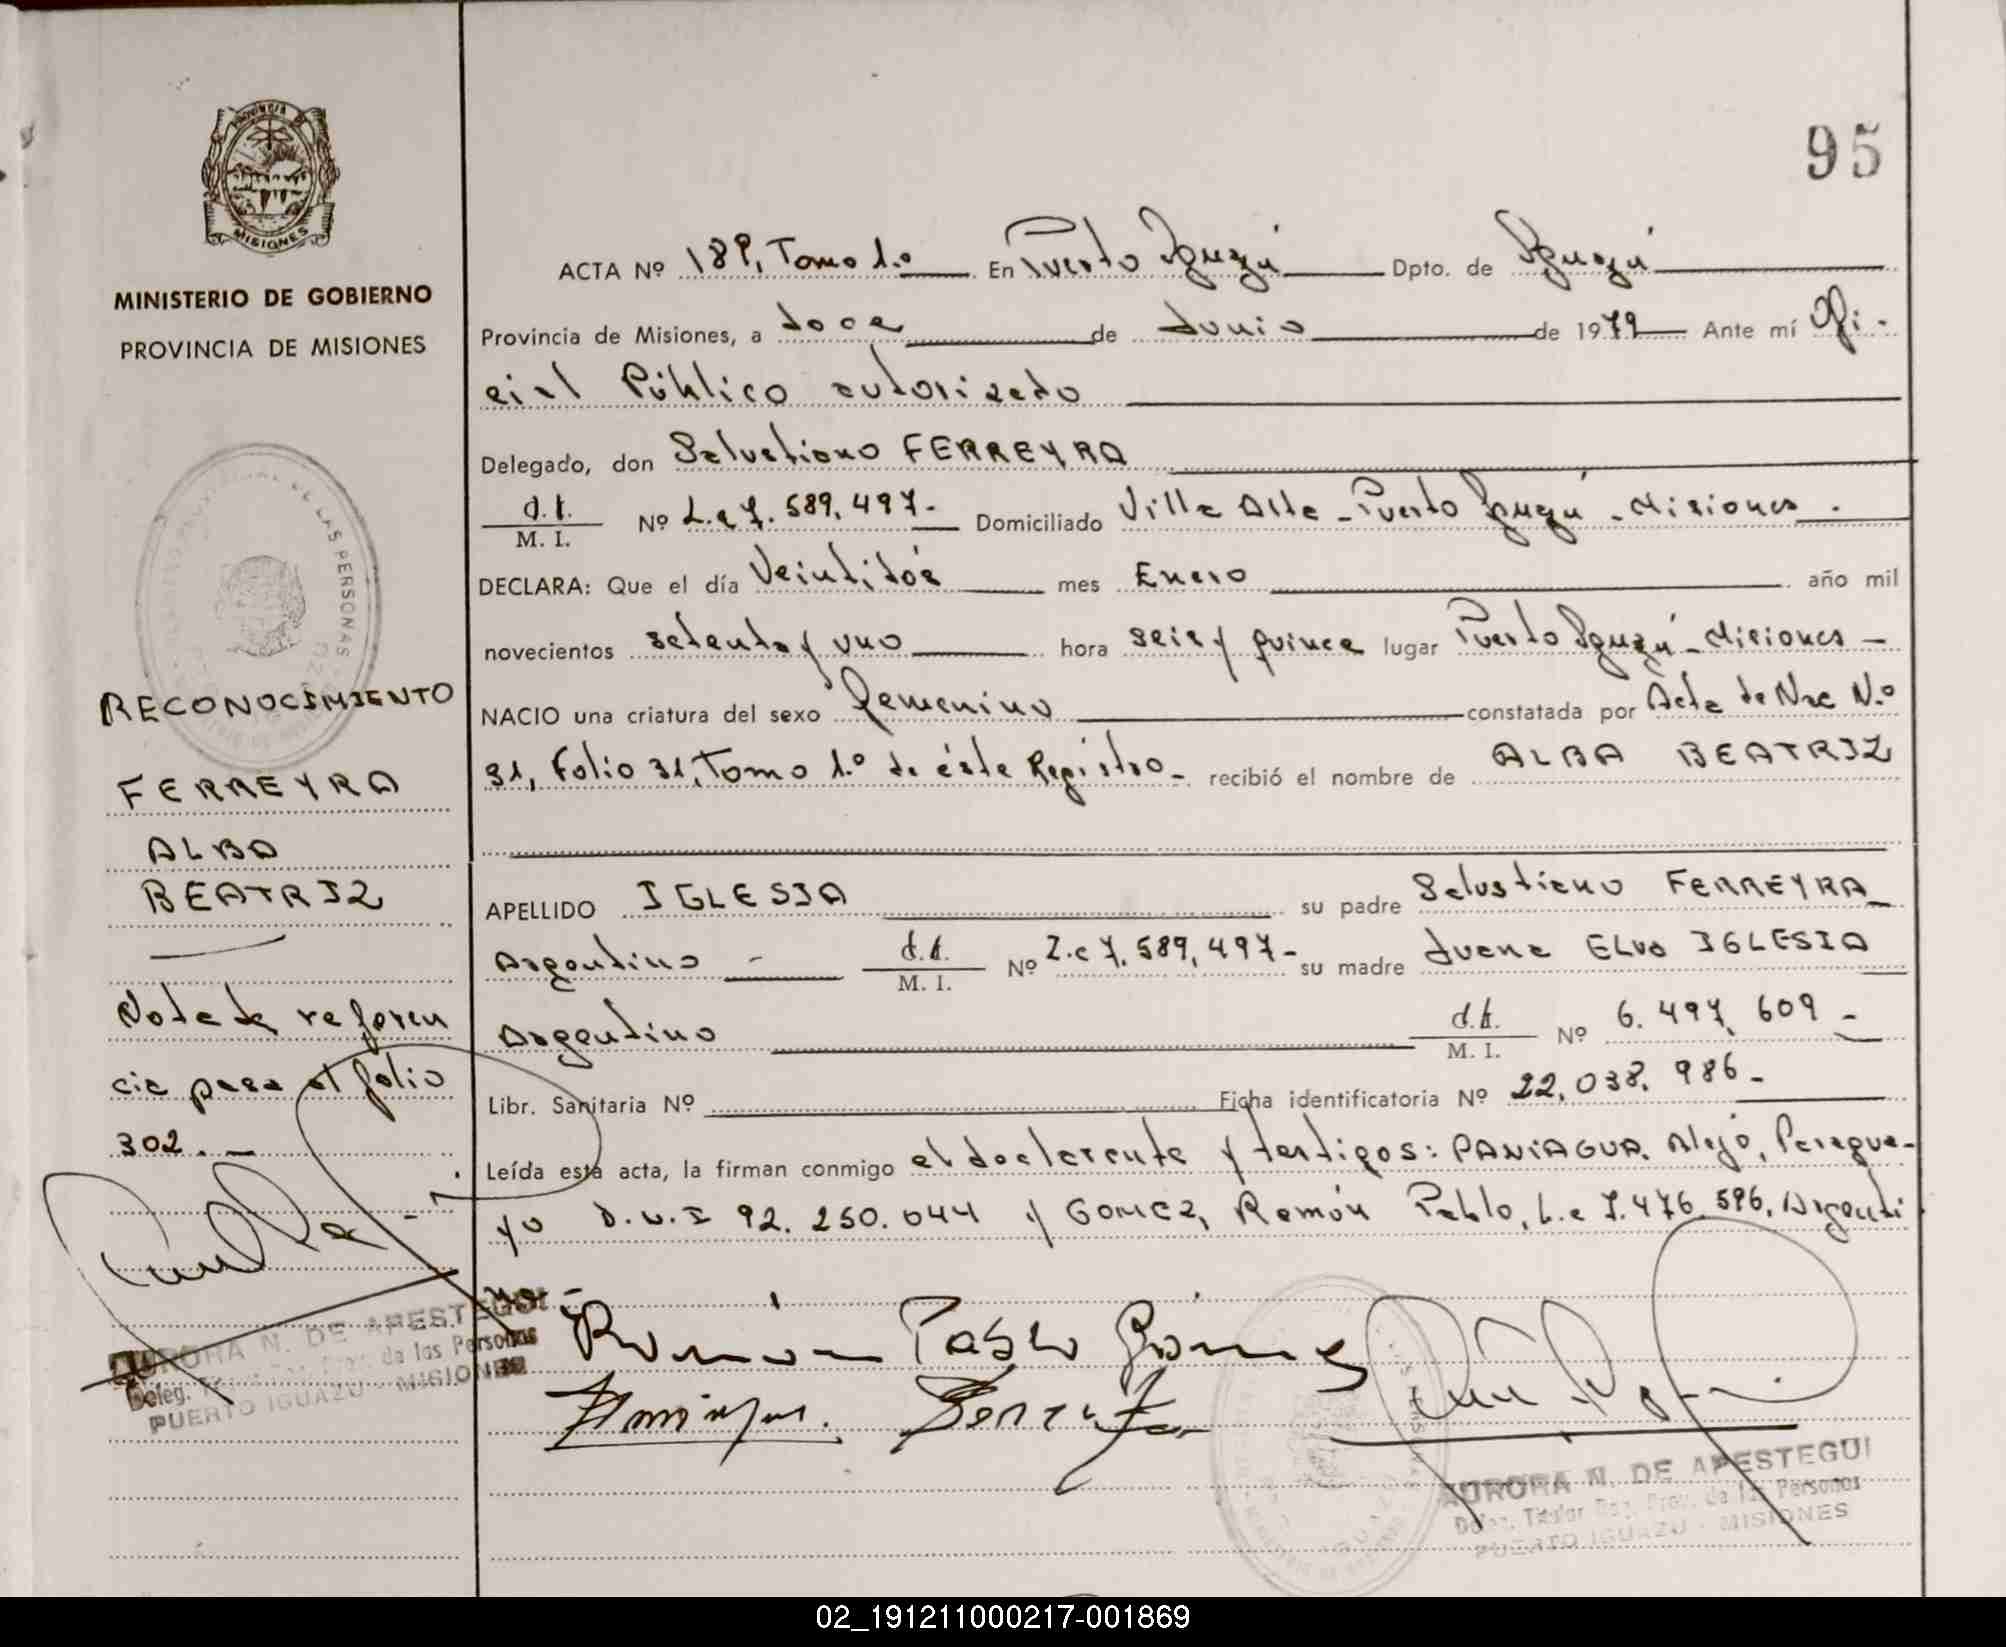 95
PROVINCIA DE
MISIONES
MINISTERIO DE GOBIERNO
PROVINCIA DE MISIONES
RECONOCIMIENTO
FERREYRA
ALBA
BEATRIZ
Nota de referen
cia pasa al folio
302.—
AURORA N. DE APESTEGUI
Deleg. Titular Reg. Prov. de las Personas
PUERTO IGUAZU - MISIONES
ACTA Nº 189, Tomo 1.º En Puerto Iguazú Dpto. de Iguazú
Provincia de Misiones, a doce de Junio de 1979 Ante mí Ofi-
cial Público autorizado
Delegado, don Salustiano FERREYRA
d.i. M. I. Nº L.e 7.589.497.- Domiciliado Villa Alta - Puerto Iguazú - Misiones.
DECLARA: Que el día Veintidós mes Enero año mil
novecientos setenta y uno hora seis y quince lugar Puerto Iguazú - Misiones -
NACIO una criatura del sexo femenino constatada por Acta de Nac N.º
31, Folio 31, Tomo 1.º de éste Registro - recibió el nombre de ALBA BEATRIZ
APELLIDO IGLESIA su padre Salustiano FERREYRA
Argentino - d.i. M. I. Nº L.e 7.589.497- su madre Juana ELVA IGLESIA
Argentino d.i. M. I. Nº 6.497.609 -
Libr. Sanitaria Nº Ficha identificatoria Nº 22.038.986 -
Leída esta acta, la firman conmigo el declarante y testigos: PANIAGUA, Alejo, Paragua-
yo D.N.I 92.250.044 y GOMEZ, Ramón Pablo, L.e 7.476.596, Argenti
no -
Ramón Pablo Gómez
AURORA N. DE APESTEGUI
Deleg. Titular Reg. Prov. de las Personas
PUERTO IGUAZU - MISIONES
02_191211000217-001869